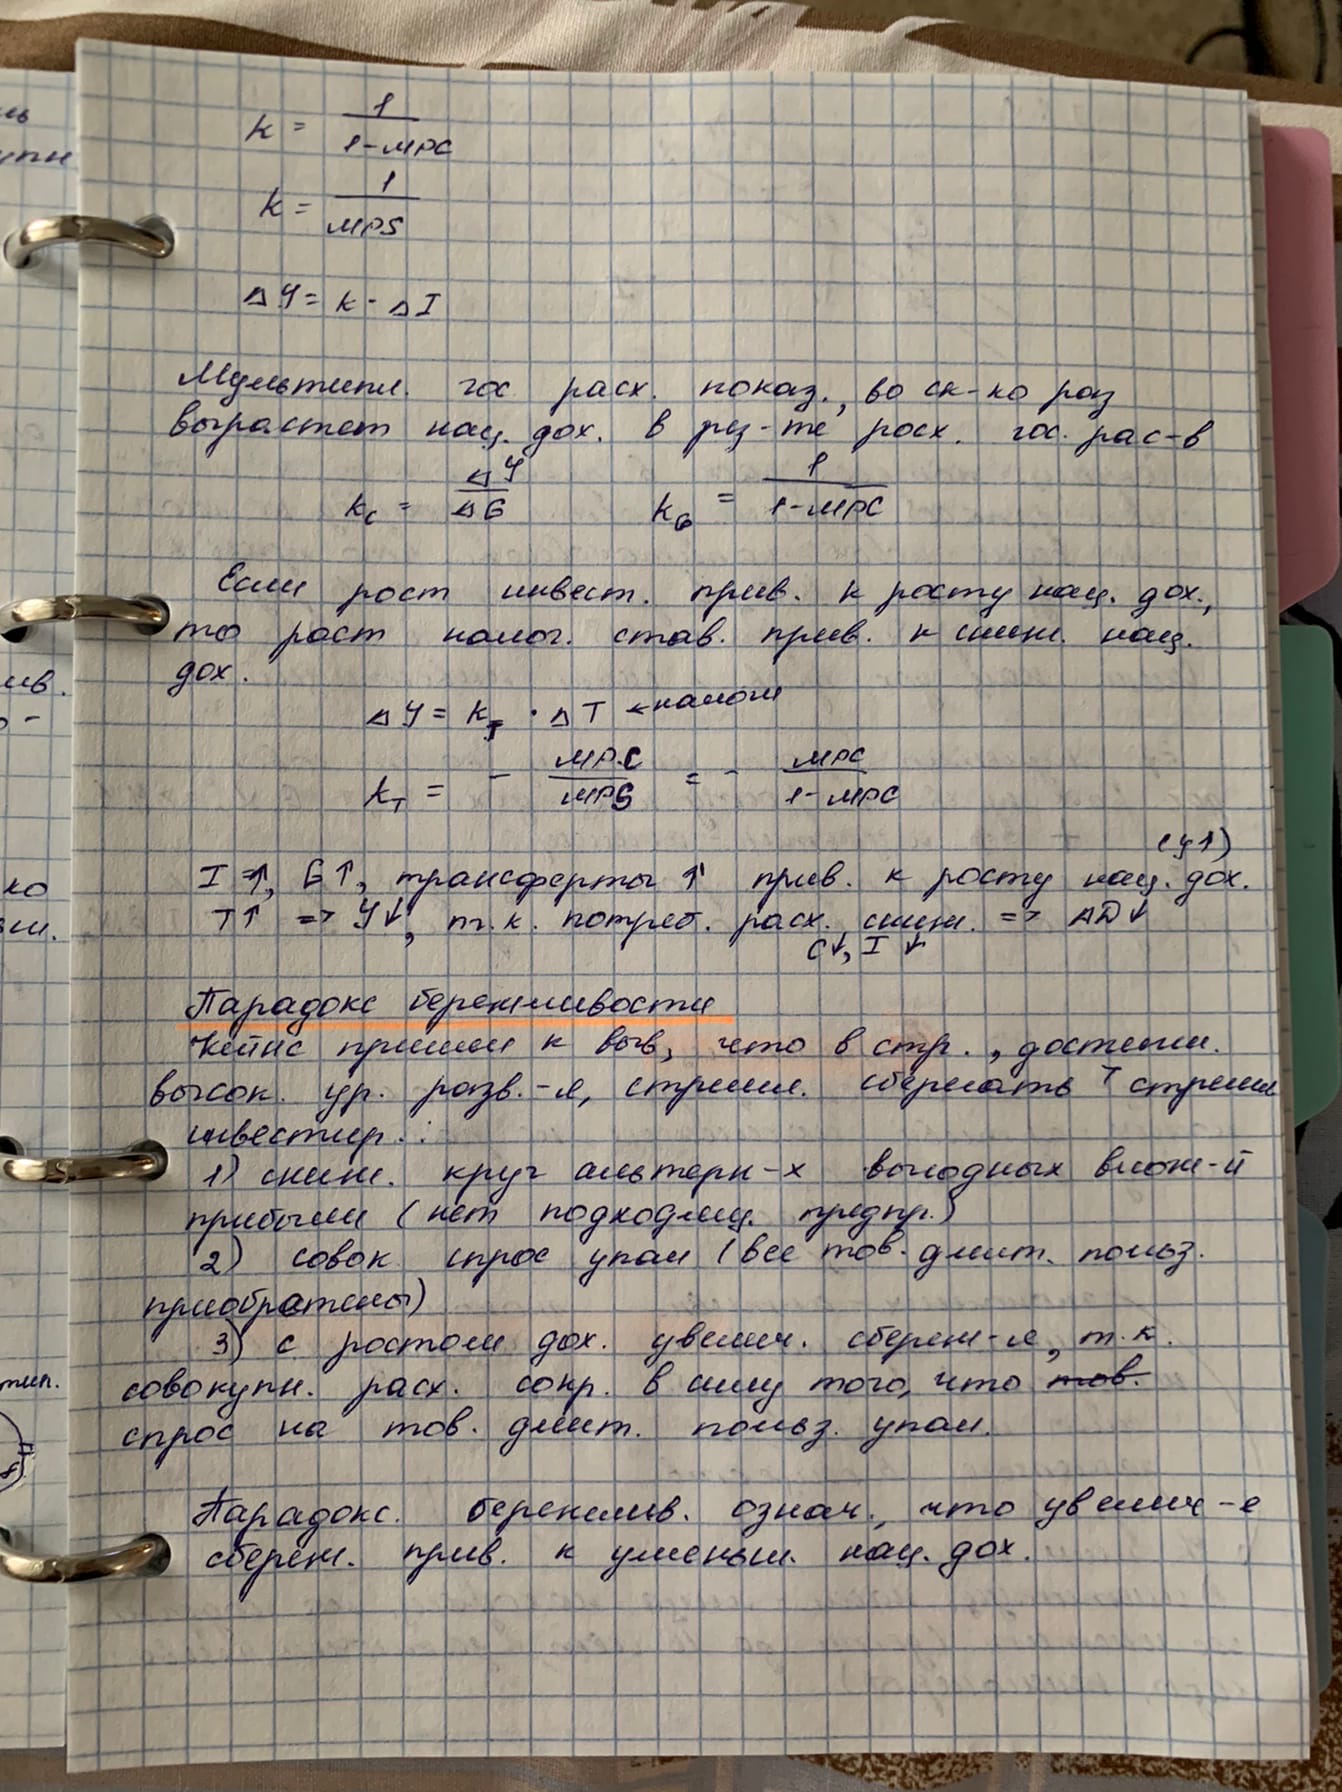 K = 1 / 1-MPC
K = 1 / MPS
ΔY = K · ΔI
Мультипл. гос. расх. показ., во ск-ко раз
вырастет нац. дох. в рез-те расх. гос. рас-в
K_G = ΔY / ΔG   K_G = 1 / 1-MPC
Если рост инвест. прив. к росту нац. дох.,
то рост налог. став. прив. к сниж. нац.
дох.
ΔY = K_T · ΔT ← налоги
K_T = - MPC / MPS = - MPC / 1-MPC
(y↑)
I ↑, G↑, трансферты ↑ прив. к росту нац. дох.
T↑ => Y↓, т.к. потреб. расх. сниж. => AD↓
C↓, I ↓
Парадокс бережливости
Кейнс пришел к выв, что в стр., достигш.
высок. ур. разв.-я, стремл. сберегать ↑ стремл
инвестир.:
1) сниж. круг альтерн-х выгодных влож-й
прибыли (нет подходящ. предпр.)
2) совок спрос упал (все тов. длит. польз.
приобретены)
3) с ростом дох. увелич. сбереж-я, т.к.
совокупн. расх. сокр. в силу того, что тов.
спрос на тов. длит. польз. упал.
Парадокс. бережлив. означ., что увелич-е
сбереж. прив. к уменьш. нац. дох.